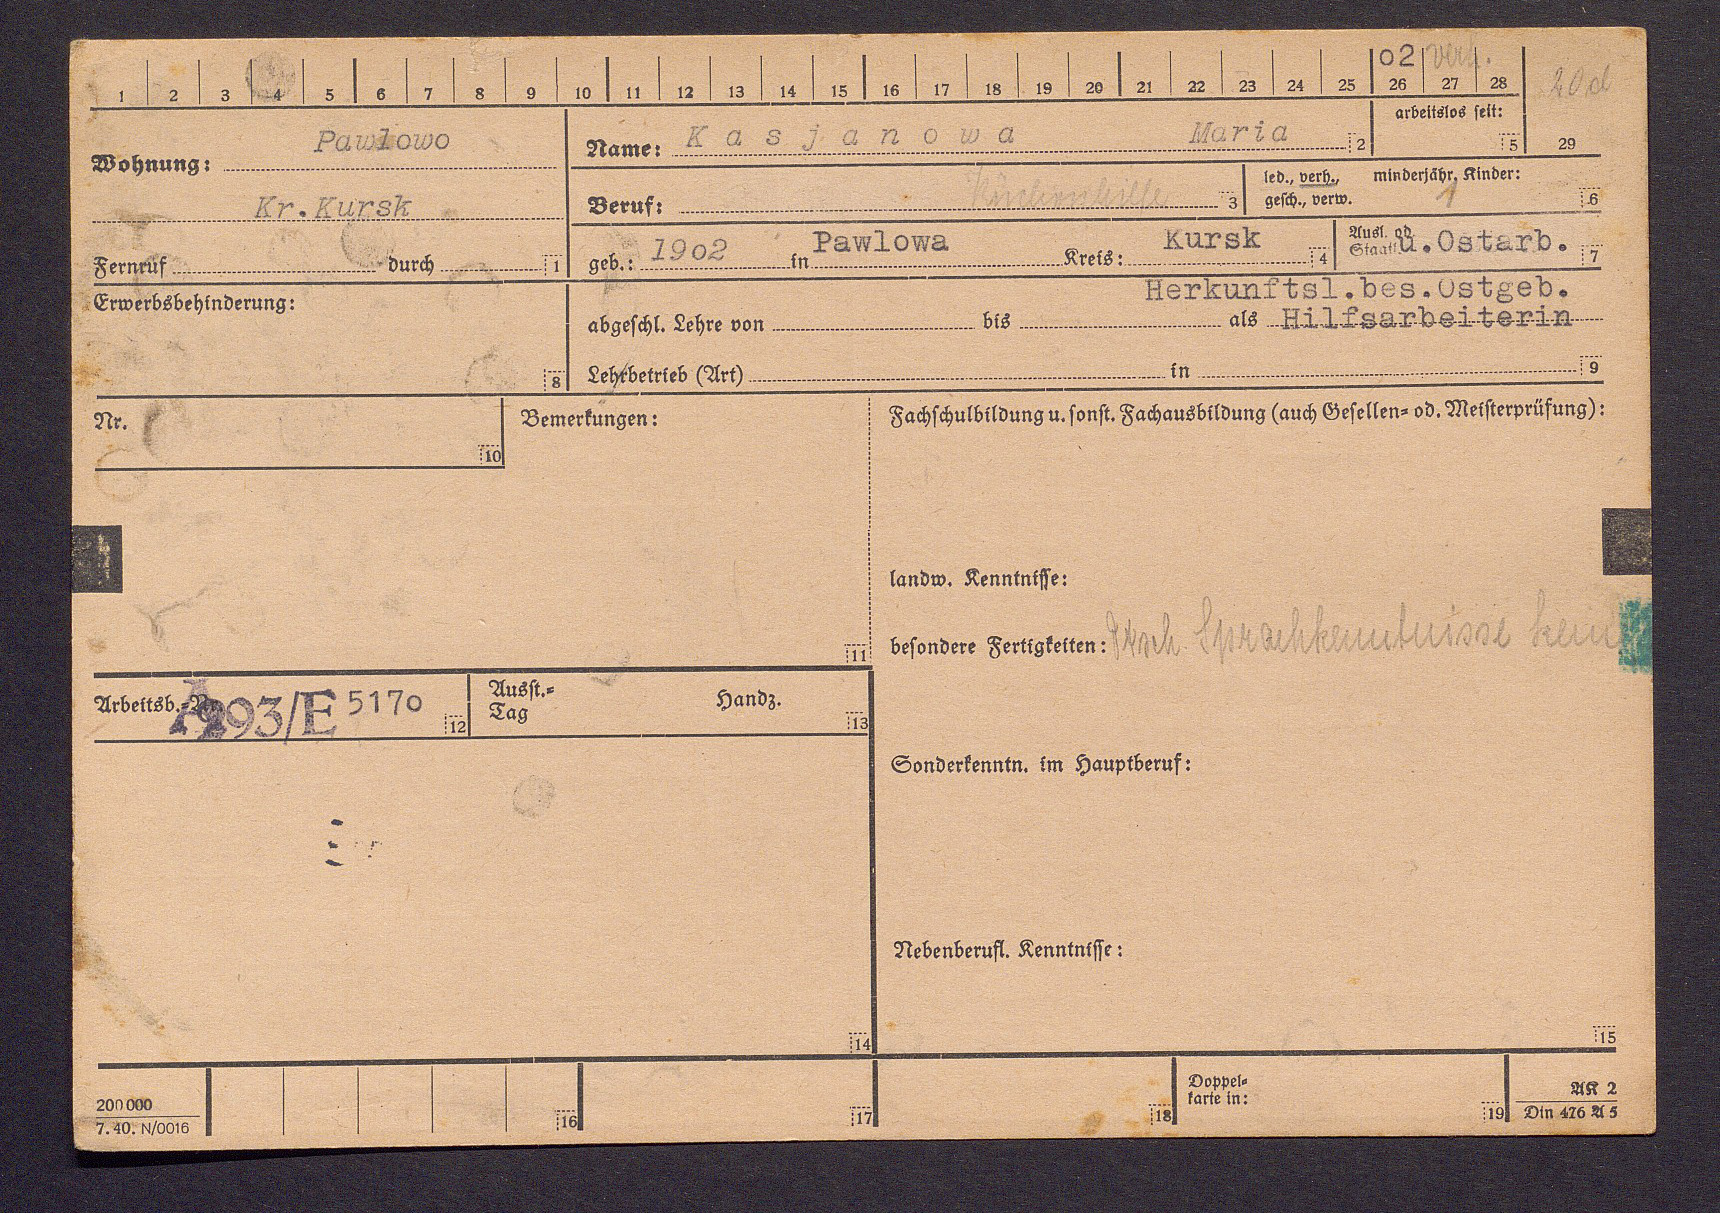 02 verh.
1 2 3 4 5 6 7 8 9 10 11 12 13 14 15 16 17 18 19 20 21 22 23 24 25 26 27 28
20d
29
Wohnung: Pawlowo
Kr.Kursk
Fernruf durch 1
Name: Kasjanowa Maria 2
arbeitslos seit:
5
Beruf: Küchenhilfe 3
led., verh., minderjähr. Kinder:
gesch., verw. 1 6
geb.: 1902 in Pawlowa Kreis: Kursk 4
Ausl. od. Staatl. u.Ostarb. 7
Erwerbsbehinderung:
8
Herkunftsl.bes.Ostgeb.
abgeschl. Lehre von bis als Hilfsarbeiterin
Lehrbetrieb (Art) in 9
Nr.
10
Bemerkungen:
11
Fachschulbildung u. sonst. Fachausbildung (auch Gesellen- od. Meisterprüfung):
landw. Kenntnisse:
besondere Fertigkeiten: Dtsch. Sprachkenntnisse kein
Arbeitsb.-Nr. A 293/E 5170 12
Ausst.-
Tag Handz. 13
Sonderkenntn. im Hauptberuf:
Nebenberufl. Kenntnisse:
14
15
200000
7. 40. N/0016
16
17
18
Doppel-
karte in:
19
AK 2
Din 476 A 5